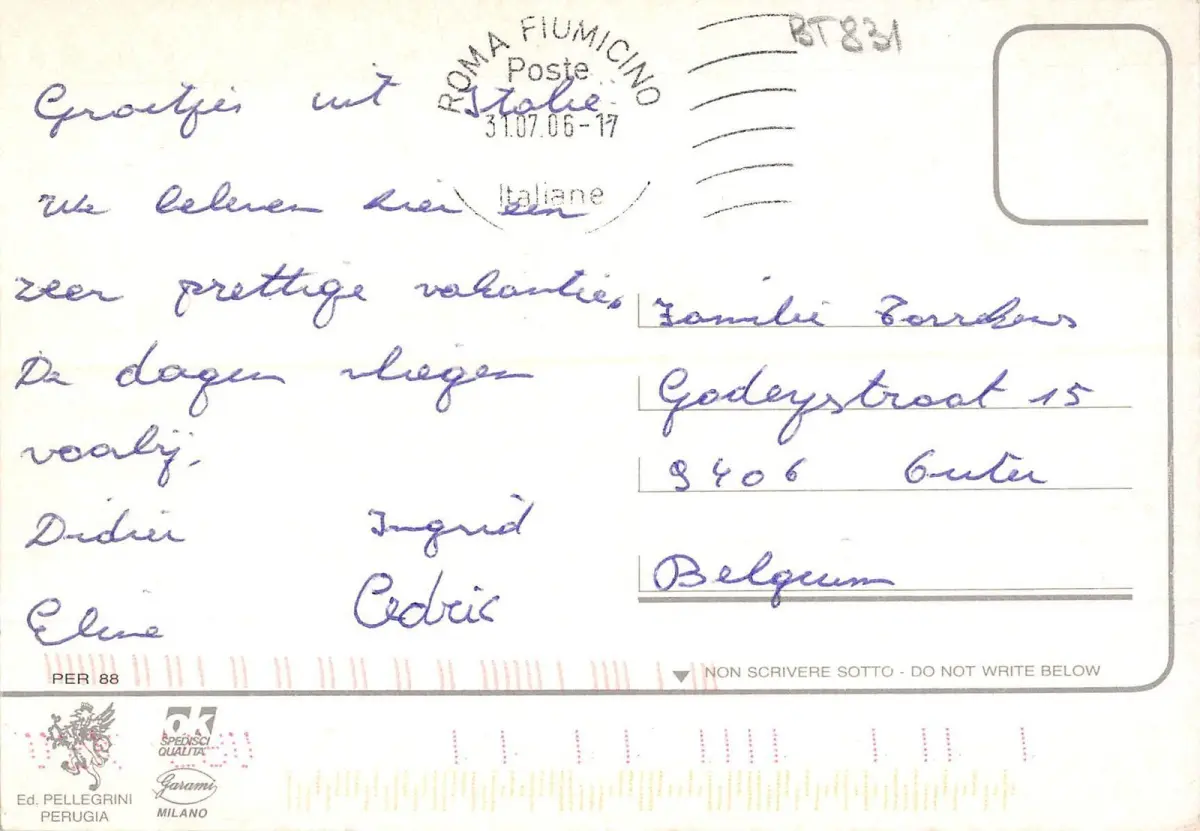 BT831
ROMA FIUMICINO
Poste
31.07.06-17
Italiane
Groetjes uit Italie.
We beleven hier een
zeer prettige vakantie.
De dagen vliegen
voorbij.
Didier Ingrid
Eline Cedric
Familie
Godeystraat 15
9406 Outer
Belgium
PER 88
NON SCRIVERE SOTTO - DO NOT WRITE BELOW
Ed. PELLEGRINI
PERUGIA
ok
SPEDISCI
QUALITA'
Garami
MILANO